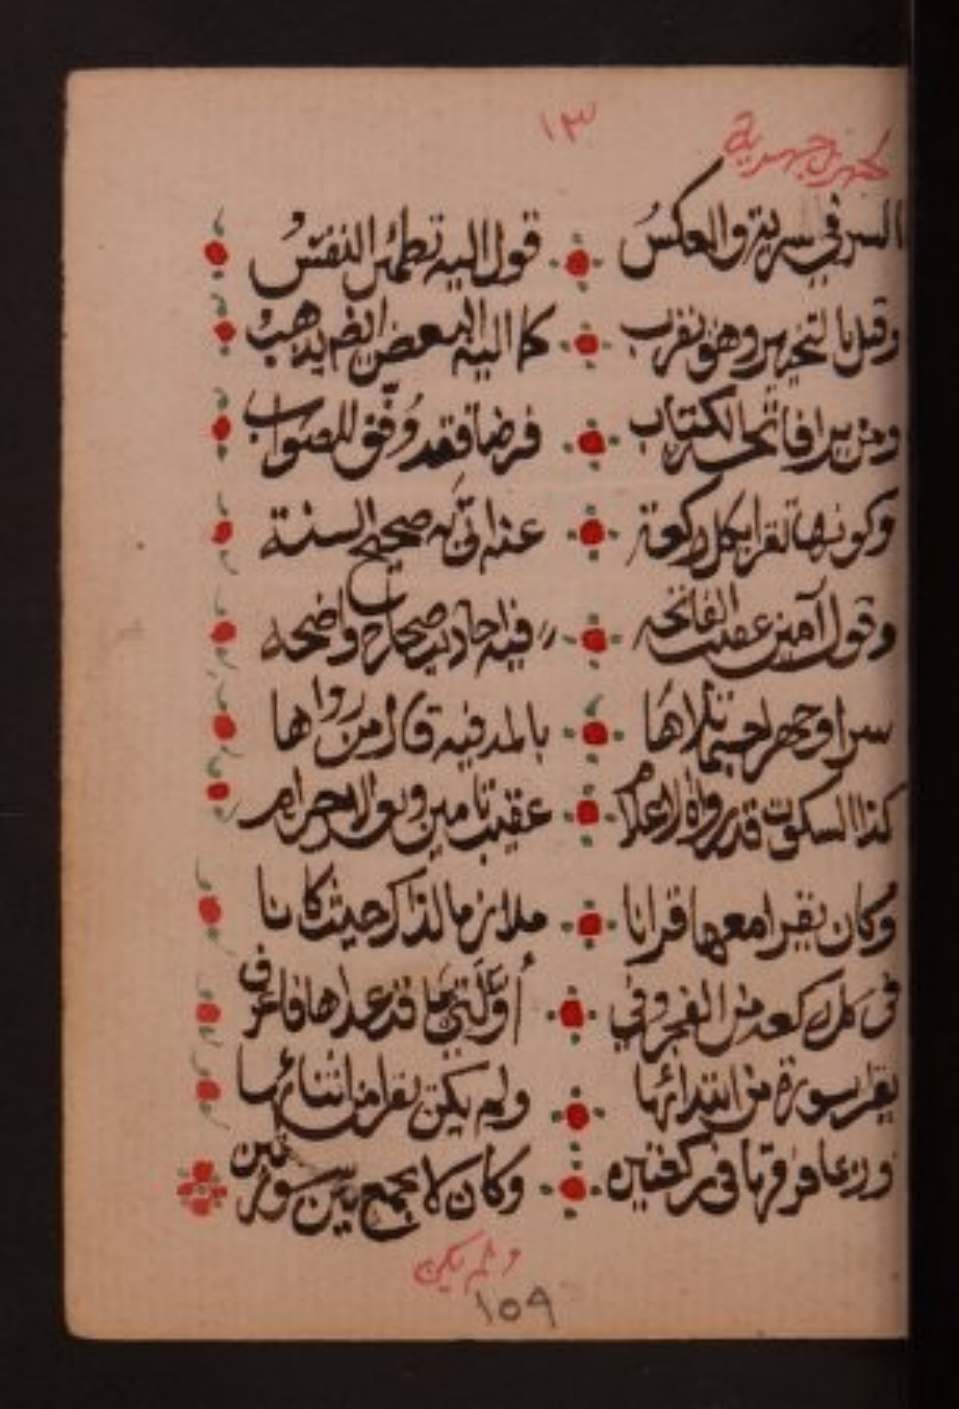 ١٣
السر في سرية والعكس قول اليه تطمئن النفس
وقيل بالتخيير وهو يقرب كما اليه البعض ايضا يذهب
ومن يرا فاتحة الكتاب فرضا فقد وُفّق للصواب
وكونها تقرا بكل ركعة عنه اتى به صحيح السنة
وقول آمين عقيب الفاتحه فيه احاديث صحاح واضحه
سرا وجهرا حيثما تلاها بالمد فيه قال من رواها
كذا السكوت قد رواه الاعلام عقيب تامين وبعد الاحرام
وكان يقرا معها قرانا ملازما لذاك حيث كانا
في كل ركعة من الفجر وفي أوّلتي ما قد عداها فاعرف
يقرا سورة من ابتدائها ولم يكن يقرا من اثنائها
وربما فرقها في ركعتين وكان لا يجمع بين سورتين
ولم يكن
١٥٩